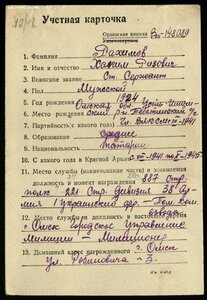 Учетная карточка
Орденская книжка
№ 148029
1. Фамилия Рахимов
2. Имя и отчество Хаким
3. Воинское звание Ст. Сержант
4. Пол Мужской
5. Год рождения 1924
Место рождения Омская обл. Усть-Ишим-
ский р-н
7. Партийность с какого года Чл. ВЛКСМ 1941
8. Образование Среднее
9. Национальность татарин
10. С какого года в Красной Армии с VIII-1941 по 1945 г.
11. Место службы (наименование части) и занимаемая
должность в момент награждения 887 Стр.
полк 221 Стр. дивизия 38 Ар-
мия 1 Украинский фр. - Пом. ком.
взвода
12. Место службы и должность в настоящее время
г. Омск Городское Управление
Милиции - Милиционер
13. Домашний адрес награжденного г. Омск
ул.